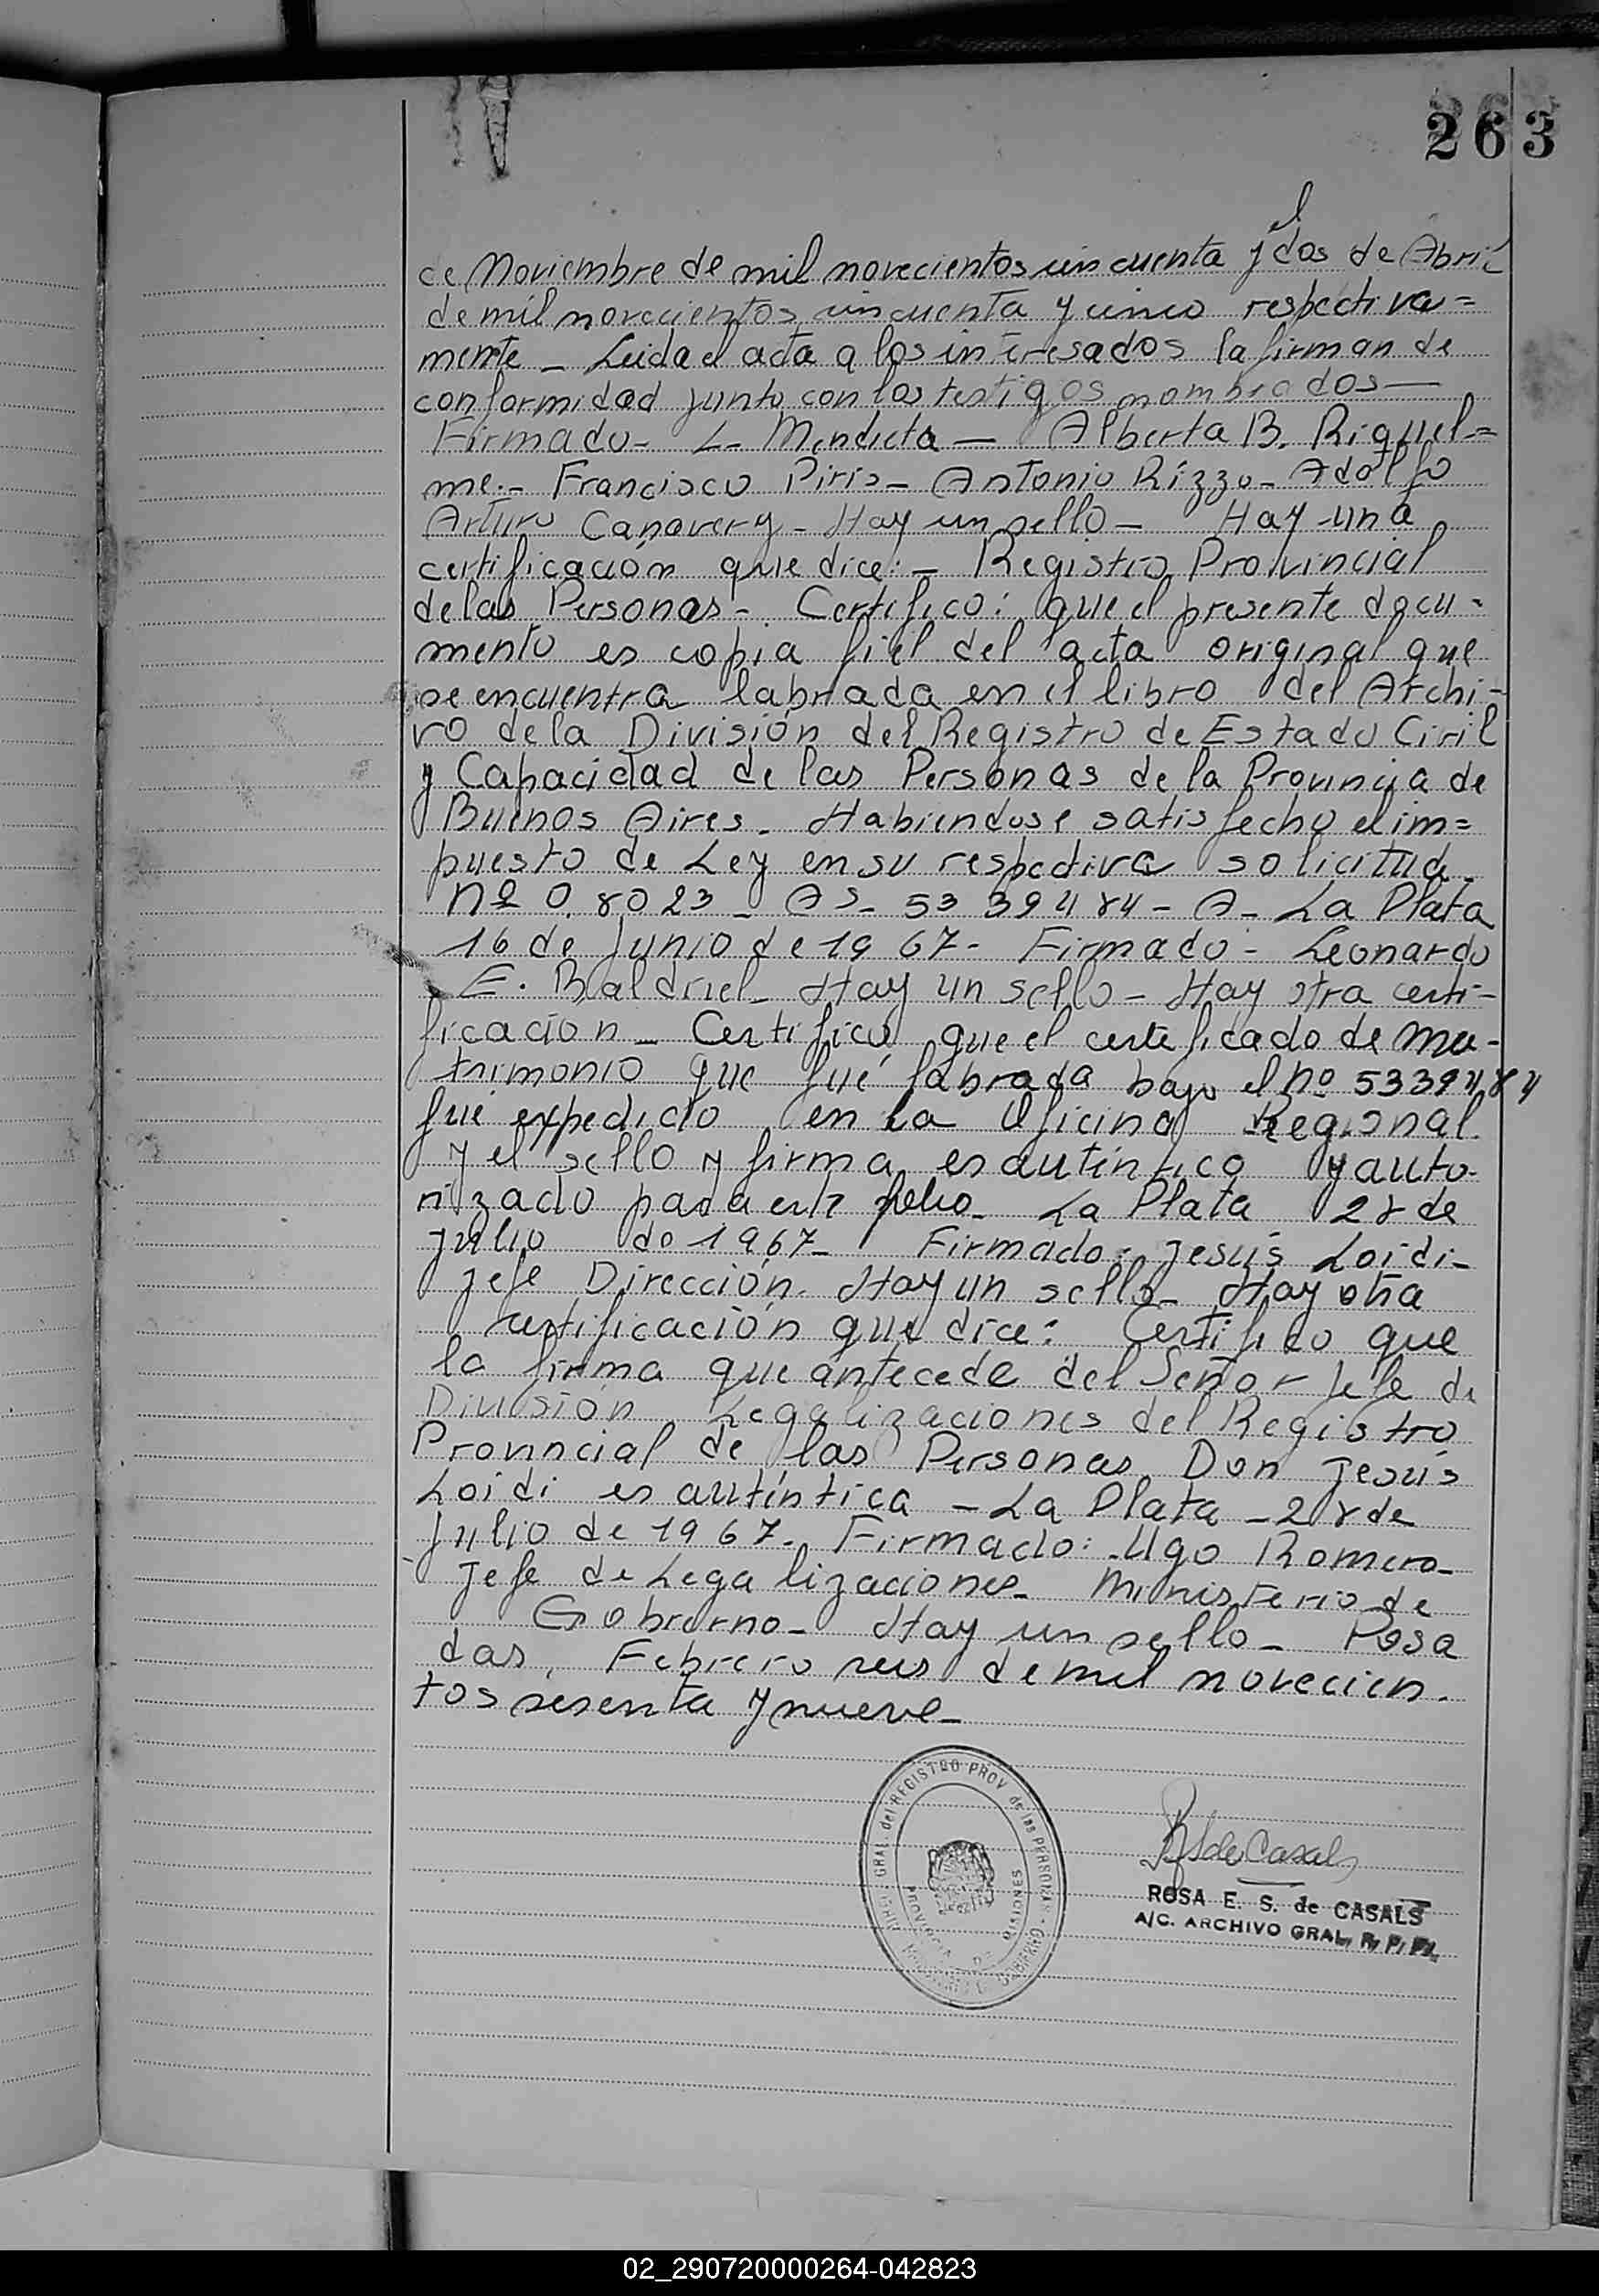 263
ce Noviembre de mil novecientos cincuenta y el dos de Abril
de mil novecientos cincuenta y cinco respectiva=
mente - Leida el acta a los interesados la firman de
conformidad junto con los testigos nombrados—
Firmado- L- Mendieta — Alberta B. Riquel=
me.- Francisco Piris- Antonio Rizzo- Adolfo
Arturo Canavery - Hay un sello - Hay una
certificación que dice:- Registro Provincial
de las Personas-. Certifico: que el presente docu-
mento es copia fiel del acta original que
se encuentra labrada en el libro del Archi-
vo de la División del Registro de Estado Civil
y Capacidad de las Personas de la Provincia de
Buenos Aires. Habiendose satisfecho el im=
puesto de Ley en su respectiva solicitud-
Nº 0.8023 - AS- 5339484 - A- La Plata
16 de Junio de 1967- Firmado - Leonardo
E. Baldriel- Hay un sello - Hay otra certi-
ficación - Certifico que el certificado de Ma-
trimonio que fué labrada bajo el nº 5339484
fué expedido en la Oficina Regional
y el sello y firma es auténtico y auto-
rizado para este La Plata 28 de
julio de 1967- Firmado: Jesús Loidi-
Jefe Dirección. Hay un sello- Hay otra
certificación que dice: Certifico que
la firma que antecede del Señor Jefe de
División Legalizaciones del Registro
Provincial de las Personas, Don Jesús
Loidi es auténtica - La Plata - 28 de
Julio de 1967. Firmado: Ugo Romero-
Jefe de Legalizaciones- Ministerio de
Gobierno- Hay un sello - Posa
das, Febrero seis de mil novecien.
tos sesenta y nueve-
DIREC. GRAL. del REGISTRO PROV. de las PERSONAS
PROVINCIA DE MISIONES
RS de Casals
ROSA E. S. de CASALS
A/C. ARCHIVO GRAL. R. P. P.
02_290720000264-042823